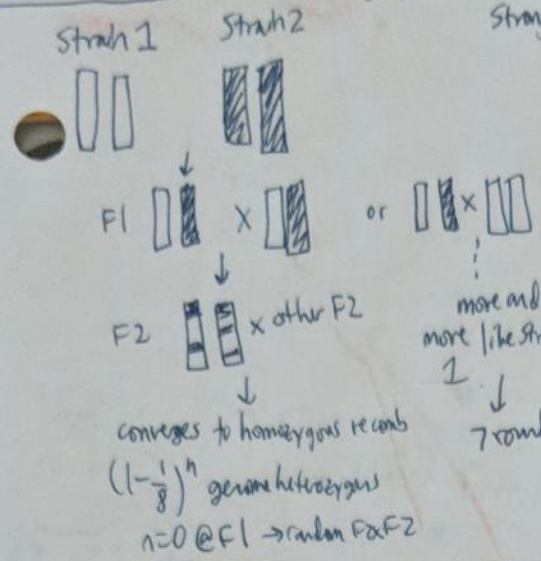 Strain 1 Strain 2 Stron
F1 X or X
F2 x other F2
more and
more like str
1
converges to homozygous recomb
7 roun
(1-1/8)^n genome heterozygous
n=0 @ F1 → random F2xF2